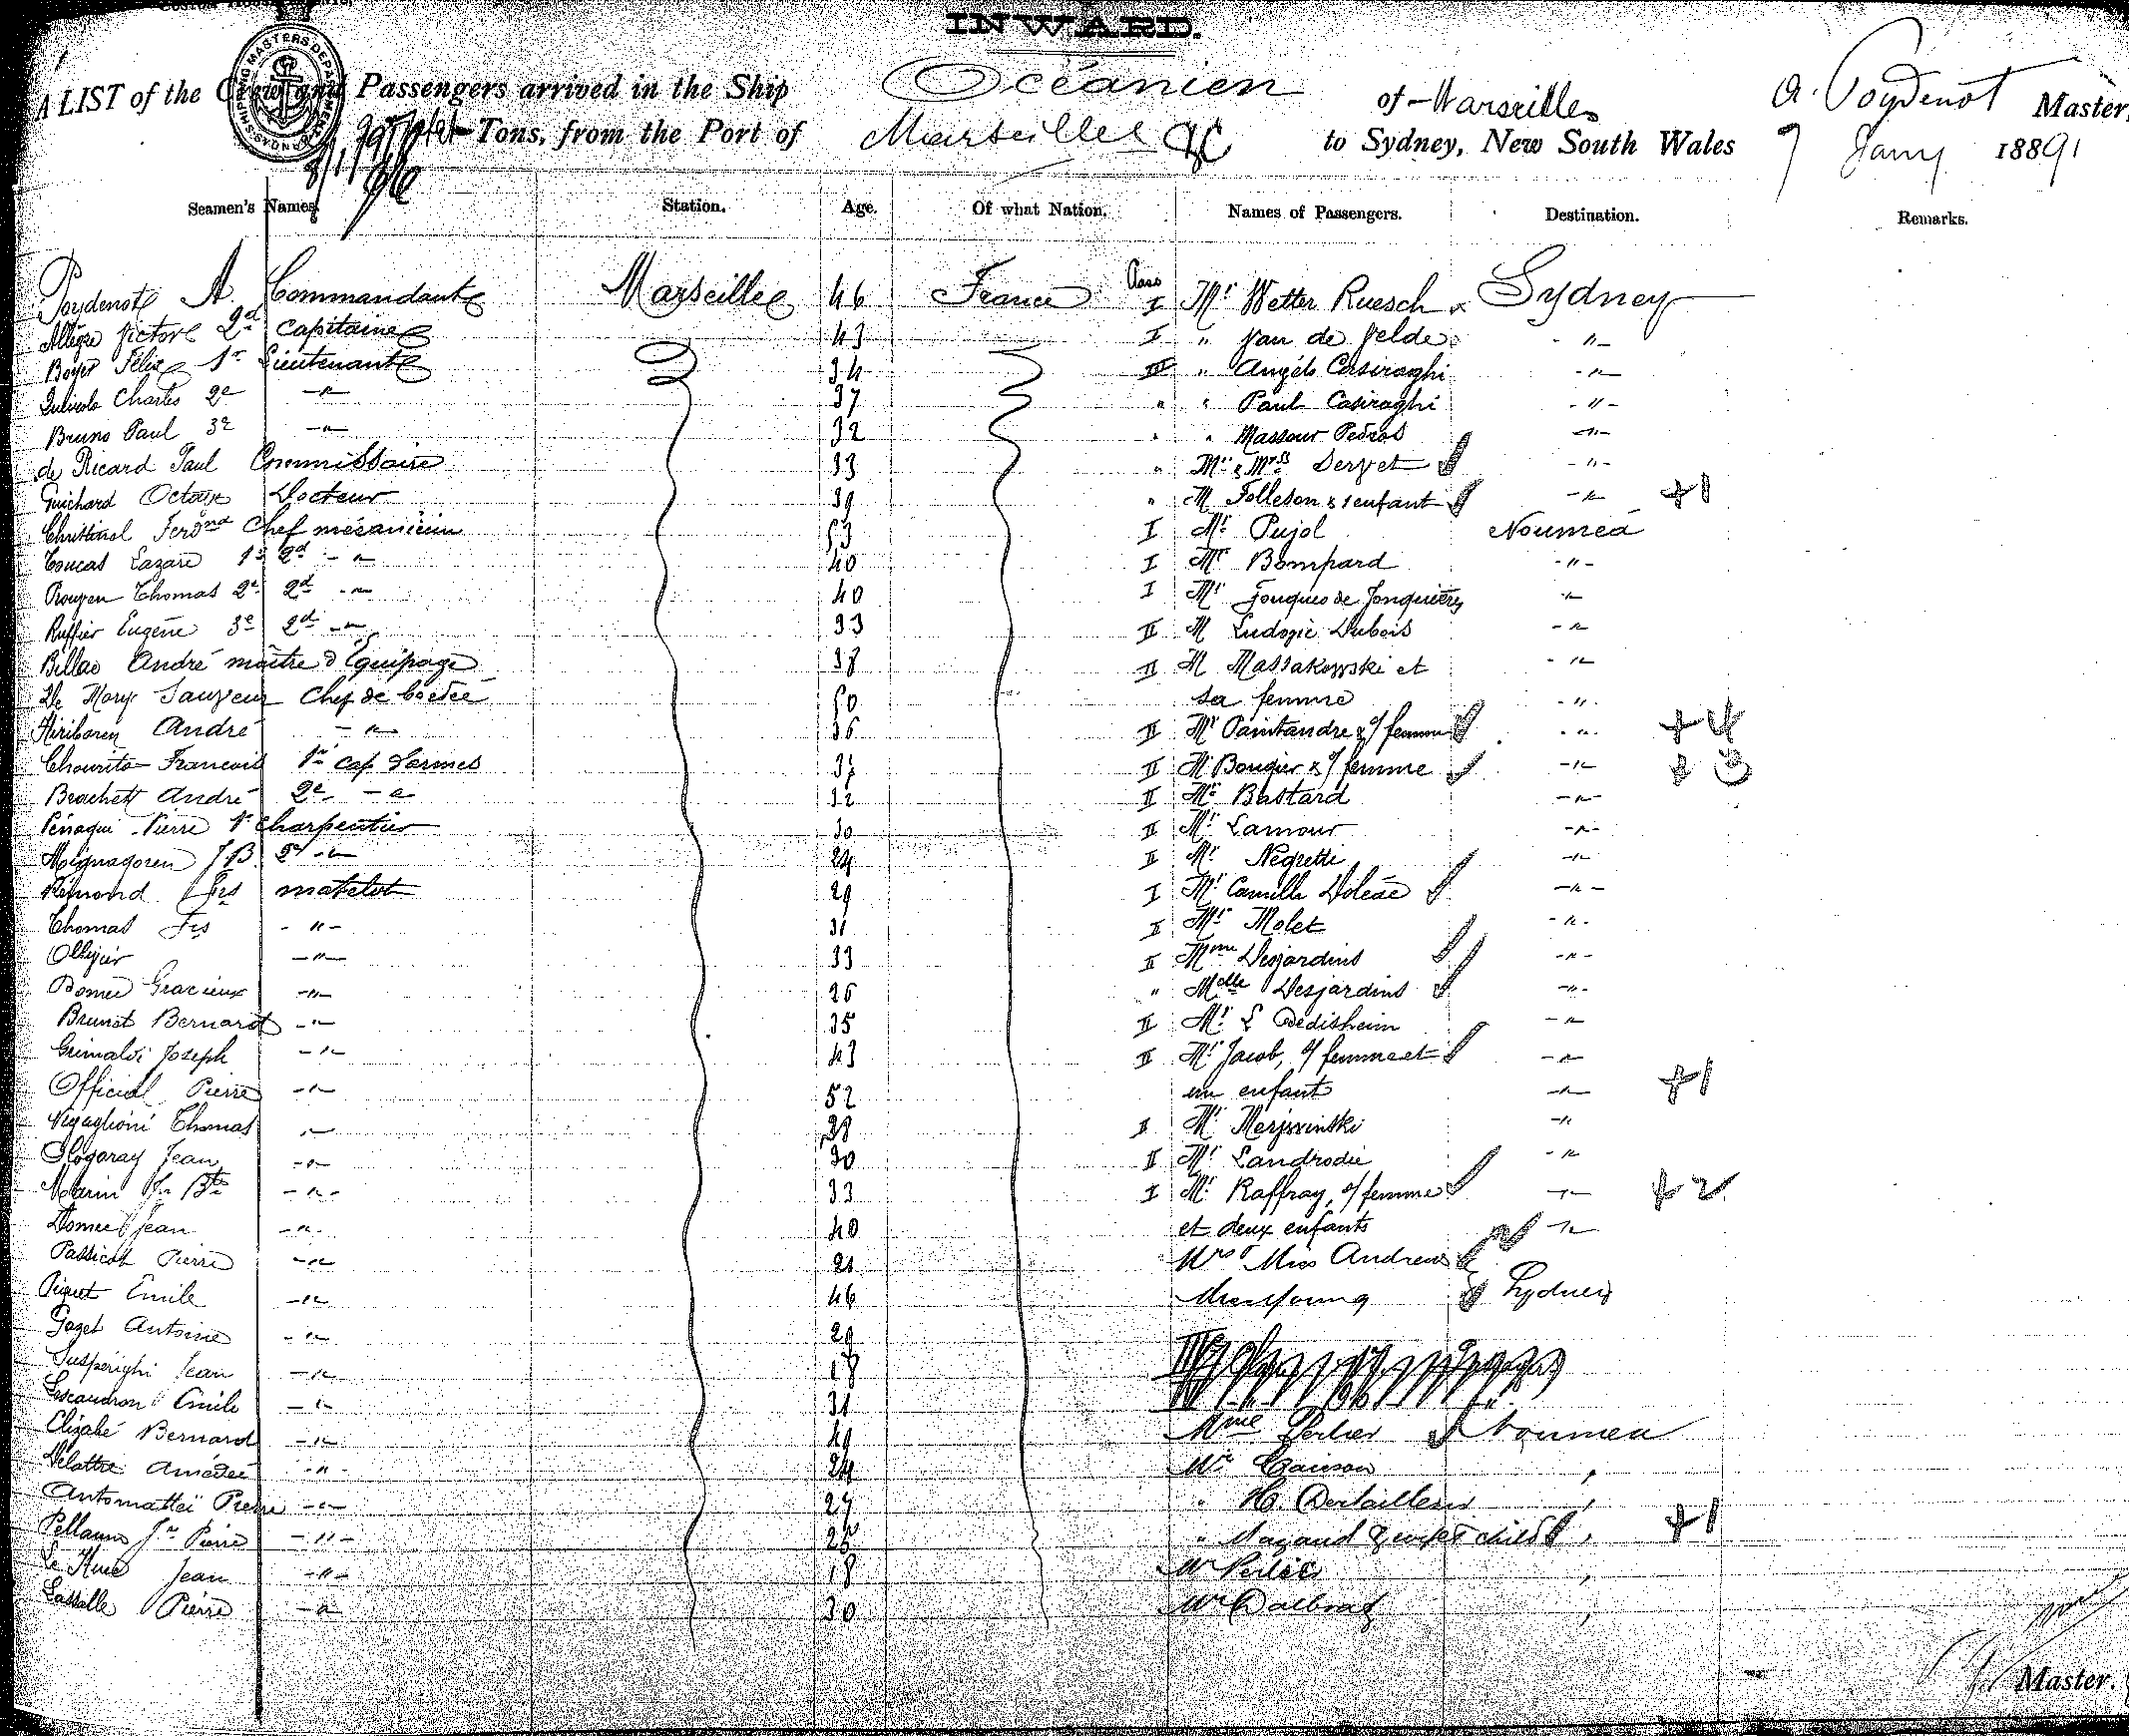 INWARD.
A LIST of the Crew and Passengers arrived in the Ship Océanien of Marseilles A. Poydenot Master,
Tons, from the Port of Marseilles &c to Sydney, New South Wales 7 Jany 1891
SHIPPING MASTERS DEPARTMENT
Seamen's Names. Station. Age. Of what Nation. Names of Passengers. Destination. Remarks.
Poydenot A. Commandant Marseille 46 France Class I Mr Wetter Ruesch Sydney
Allègre Victor 2d Capitaine 43 I " Van de Velde -"-
Boyer Félix 1er Lieutenant 34 III " Angélo Casiraghi -"-
Charles 2e -"- 37 " " Paul Casiraghi -"-
Bruno Paul 3e -"- 32 " " Massour Pedros -"-
de Ricard Paul Commissaire 33 " Mr & Mrs Dervet -"-
Guichard Octave Docteur 39 " M Folleson & 1 enfant -"- +1
Ferdnd Chef mécanicien 53 I Mr Pujol Nouméa
Toucas Lazare 1er 2d -"- 40 I Mr Bompard -"-
Rouyen Thomas 2e 2d -"- 40 I Mr Fouques de Jonquières -"-
Ruffier Eugène 3e 2d -"- 33 II M Ludovic Dubois -"-
Billac André maître d'Équipage 38 II M Massakowski et -"-
Sauveur Chef de 50 sa femme -"-
Hiriboren André -"- 36 II Mr Paintandre & s/ femme -"- +4
François 1er cap d'armes 37 II M Bougier & s/ femme -"- + 3
Brachett André 2e -"- 32 II Mr Bastard -"-
Pierre 1er Charpentier 30 II Mr Lamour -"-
J.B. 2e -"- 24 II Mr Negretti -"-
Rémond Frs matelot 29 I Mr Camille -"-
Thomas Frs -"- 31 II Mr Molet -"-
Ollivier -"- 33 II Mme Desjardins -"-
Gracieux -"- 26 " Melle Desjardins -"-
Brunet Bernard -"- 35 II Mr L Dedisheim -"-
Grimaldi Joseph -"- 43 II Mr Jacob, s/ femme et -"-
Official Pierre -"- 52 un enfant -"- +1
Thomas -"- 28 II Mr -"-
Jean -"- 30 II Mr Landrodie -"-
Marin Jn Bte -"- 33 I Mr Raffray, s/ femme -"- +2
Jean -"- 40 et deux enfants -"-
Passicot Pierre -"- 21 Mrs & Miss Andrews
Piquet Emile -"- 46 Miss Young Sydney
Gazel Antoine -"- 29
Susperighi Jean -"- 18
Lescaudron Emile -"- 31
Elizabé Bernard -"- 49 Mme Perlier Noumea
Delattre Amédée -"- 24 Mr Causon "
Antomattei Pierre -"- 27 " H. "
Jn Pierre -"- " & wife & child " +1
Jean -"- 18 Mr Perlier "
Lassalle Pierre -"- 30 Mr "
Master.